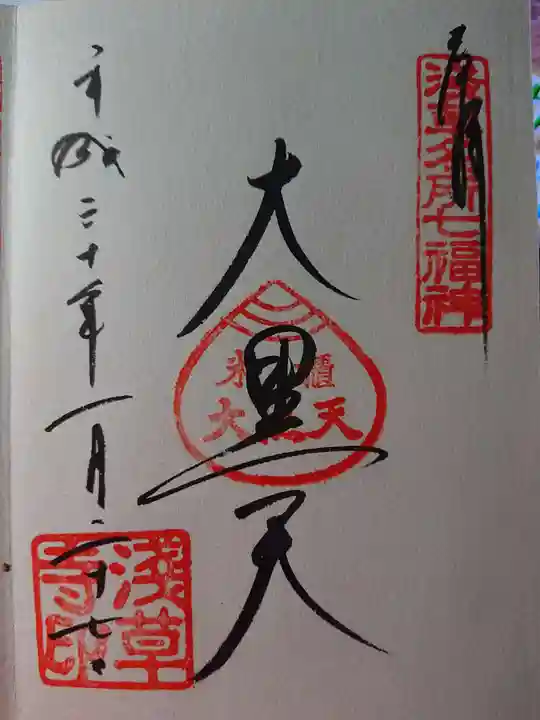 奉拝
浅草名所七福神
大黒天
米櫃
大黒天
平成三十年一月二十七日
浅草寺印